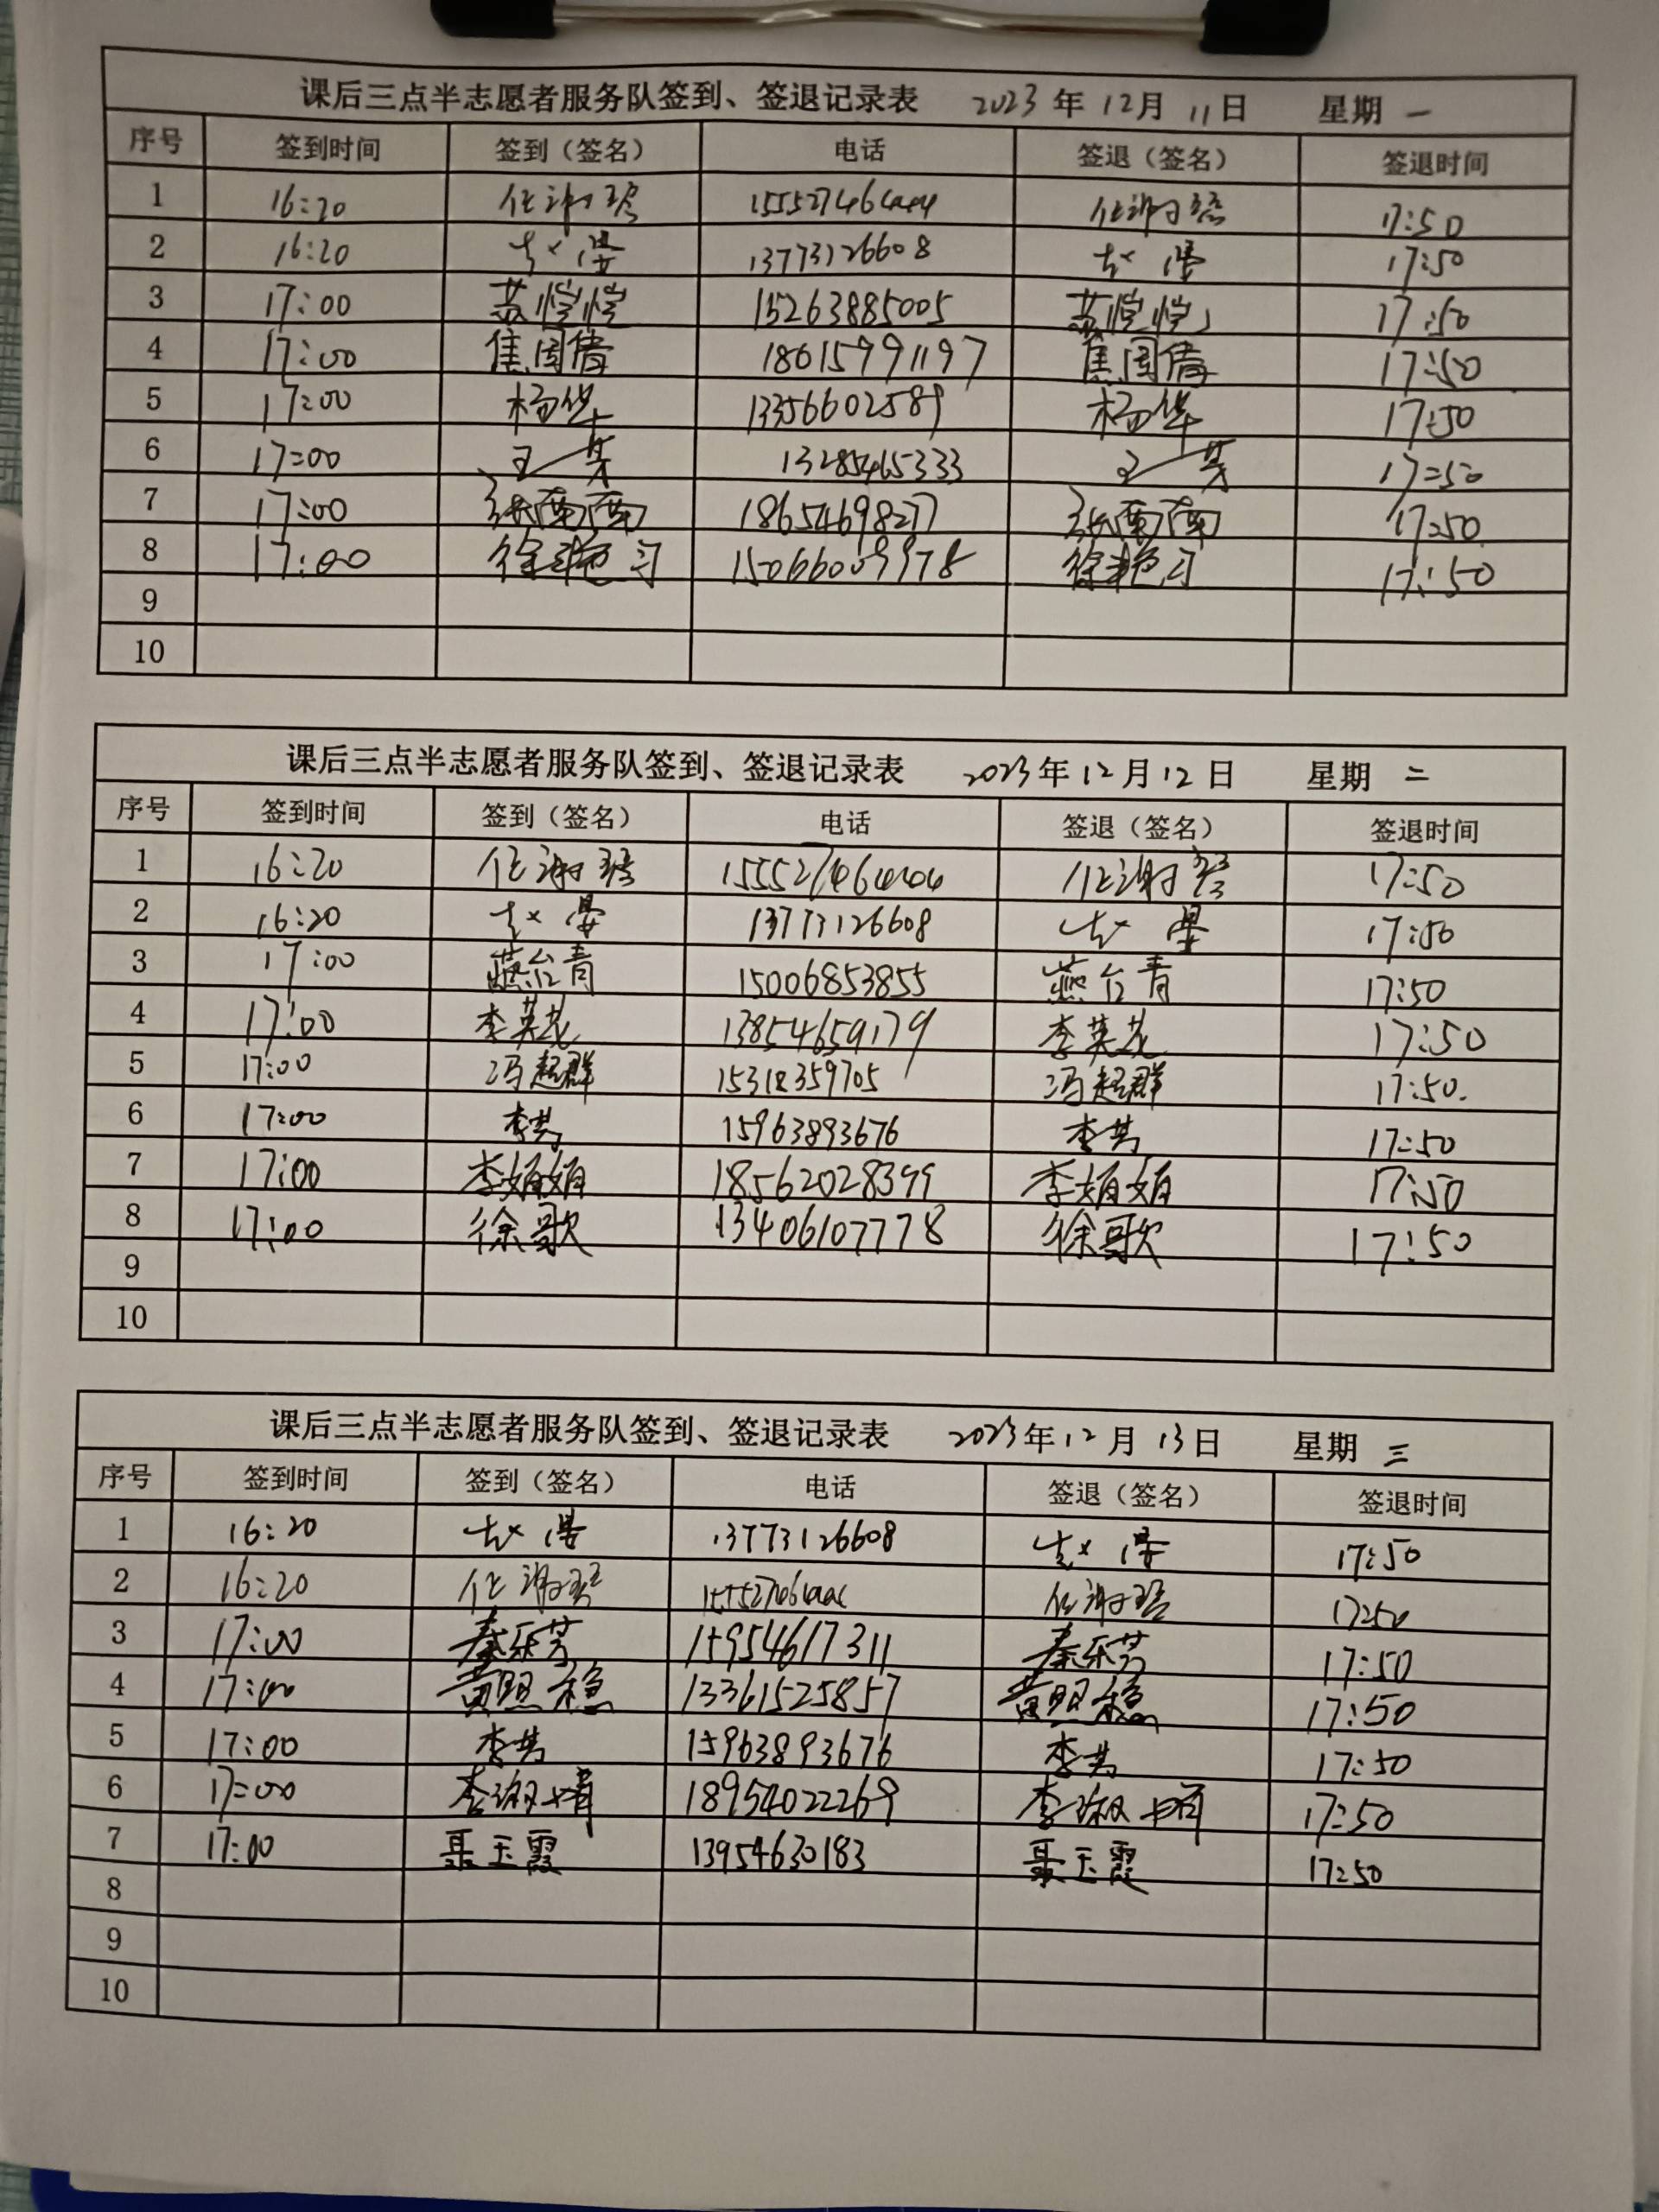 课后三点半志愿者服务队签到、签退记录表 2023年12月11日 星期一
序号 签到时间 签到（签名） 电话 签退（签名） 签退时间
1 16:20 17:50
2 16:20 13773126608 17:50
3 17:00 苏恺恺 15263885005 苏恺恺 17:50
4 17:00 焦圆倩 18615991197 焦圆倩 17:50
5 17:00 杨华 13356602589 杨华 17:50
6 17:00 13285465333 17:50
7 17:00 张南南 18654698277 张南南 17:50
8 17:00 15066009978 17:50
9
10
课后三点半志愿者服务队签到、签退记录表 2023年12月12日 星期二
序号 签到时间 签到（签名） 电话 签退（签名） 签退时间
1 16:20 17:50
2 16:20 13773126608 17:50
3 17:00 燕台青 15006853855 燕台青 17:50
4 17:00 13854659179 17:50
5 17:00 冯超群 15318359705 冯超群 17:50.
6 17:00 15963893676 17:50
7 17:00 李娟娟 18562028399 李娟娟 17:50
8 17:00 徐歌 13406107778 徐歌 17:50
9
10
课后三点半志愿者服务队签到、签退记录表 2023年12月13日 星期三
序号 签到时间 签到（签名） 电话 签退（签名） 签退时间
1 16:20 13773126608 17:50
2 16:20 17:50
3 17:00 秦乐芳 15954617311 秦乐芳 17:50
4 17:00 黄照稳 13361525857 黄照稳 17:50
5 17:00 15963893676 17:50
6 17:00 李淑婧 18954022269 李淑婧 17:50
7 17:00 聂玉霞 13954630183 聂玉霞 17:50
8
9
10